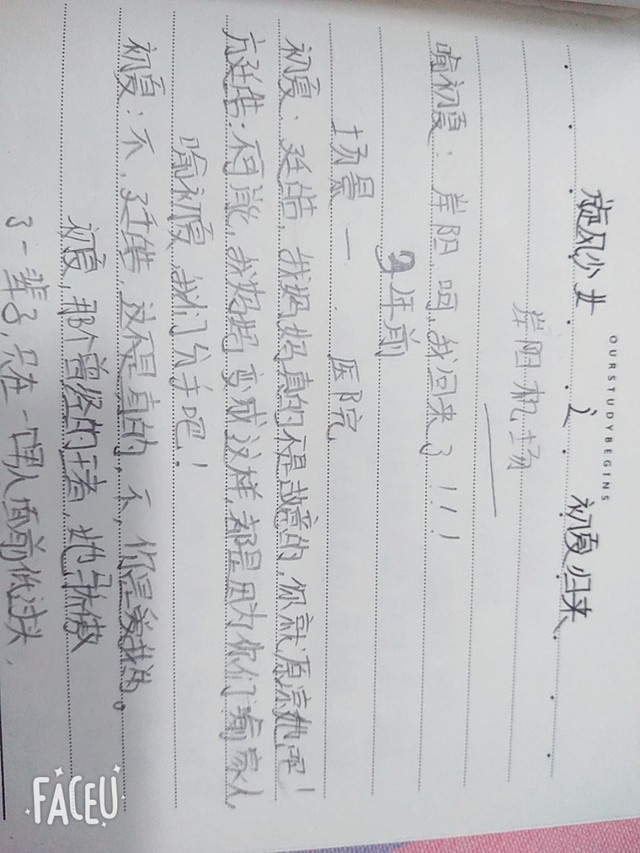 OURSTUDYBEGINS
旋风少女之初夏归来
岸阳机场
喻初夏：岸阳，呵，我回来了！！！
9年前
场景一：医院
初夏：廷皓，我妈妈真的不是故意的，你就原谅她吧！
方廷皓：不可能，我妈妈变成这样，都是因为你们喻家人，
喻初夏，我们分手吧！
初夏：不，廷皓，这不是真的，不，你是爱我的。
初夏，那个曾经的王者，她骄傲
了一辈子，只在一个男人面前低过头，
FACEU